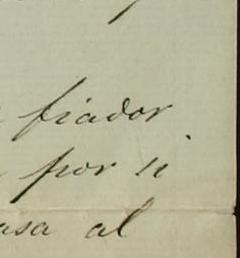 fiador
por si
asa al